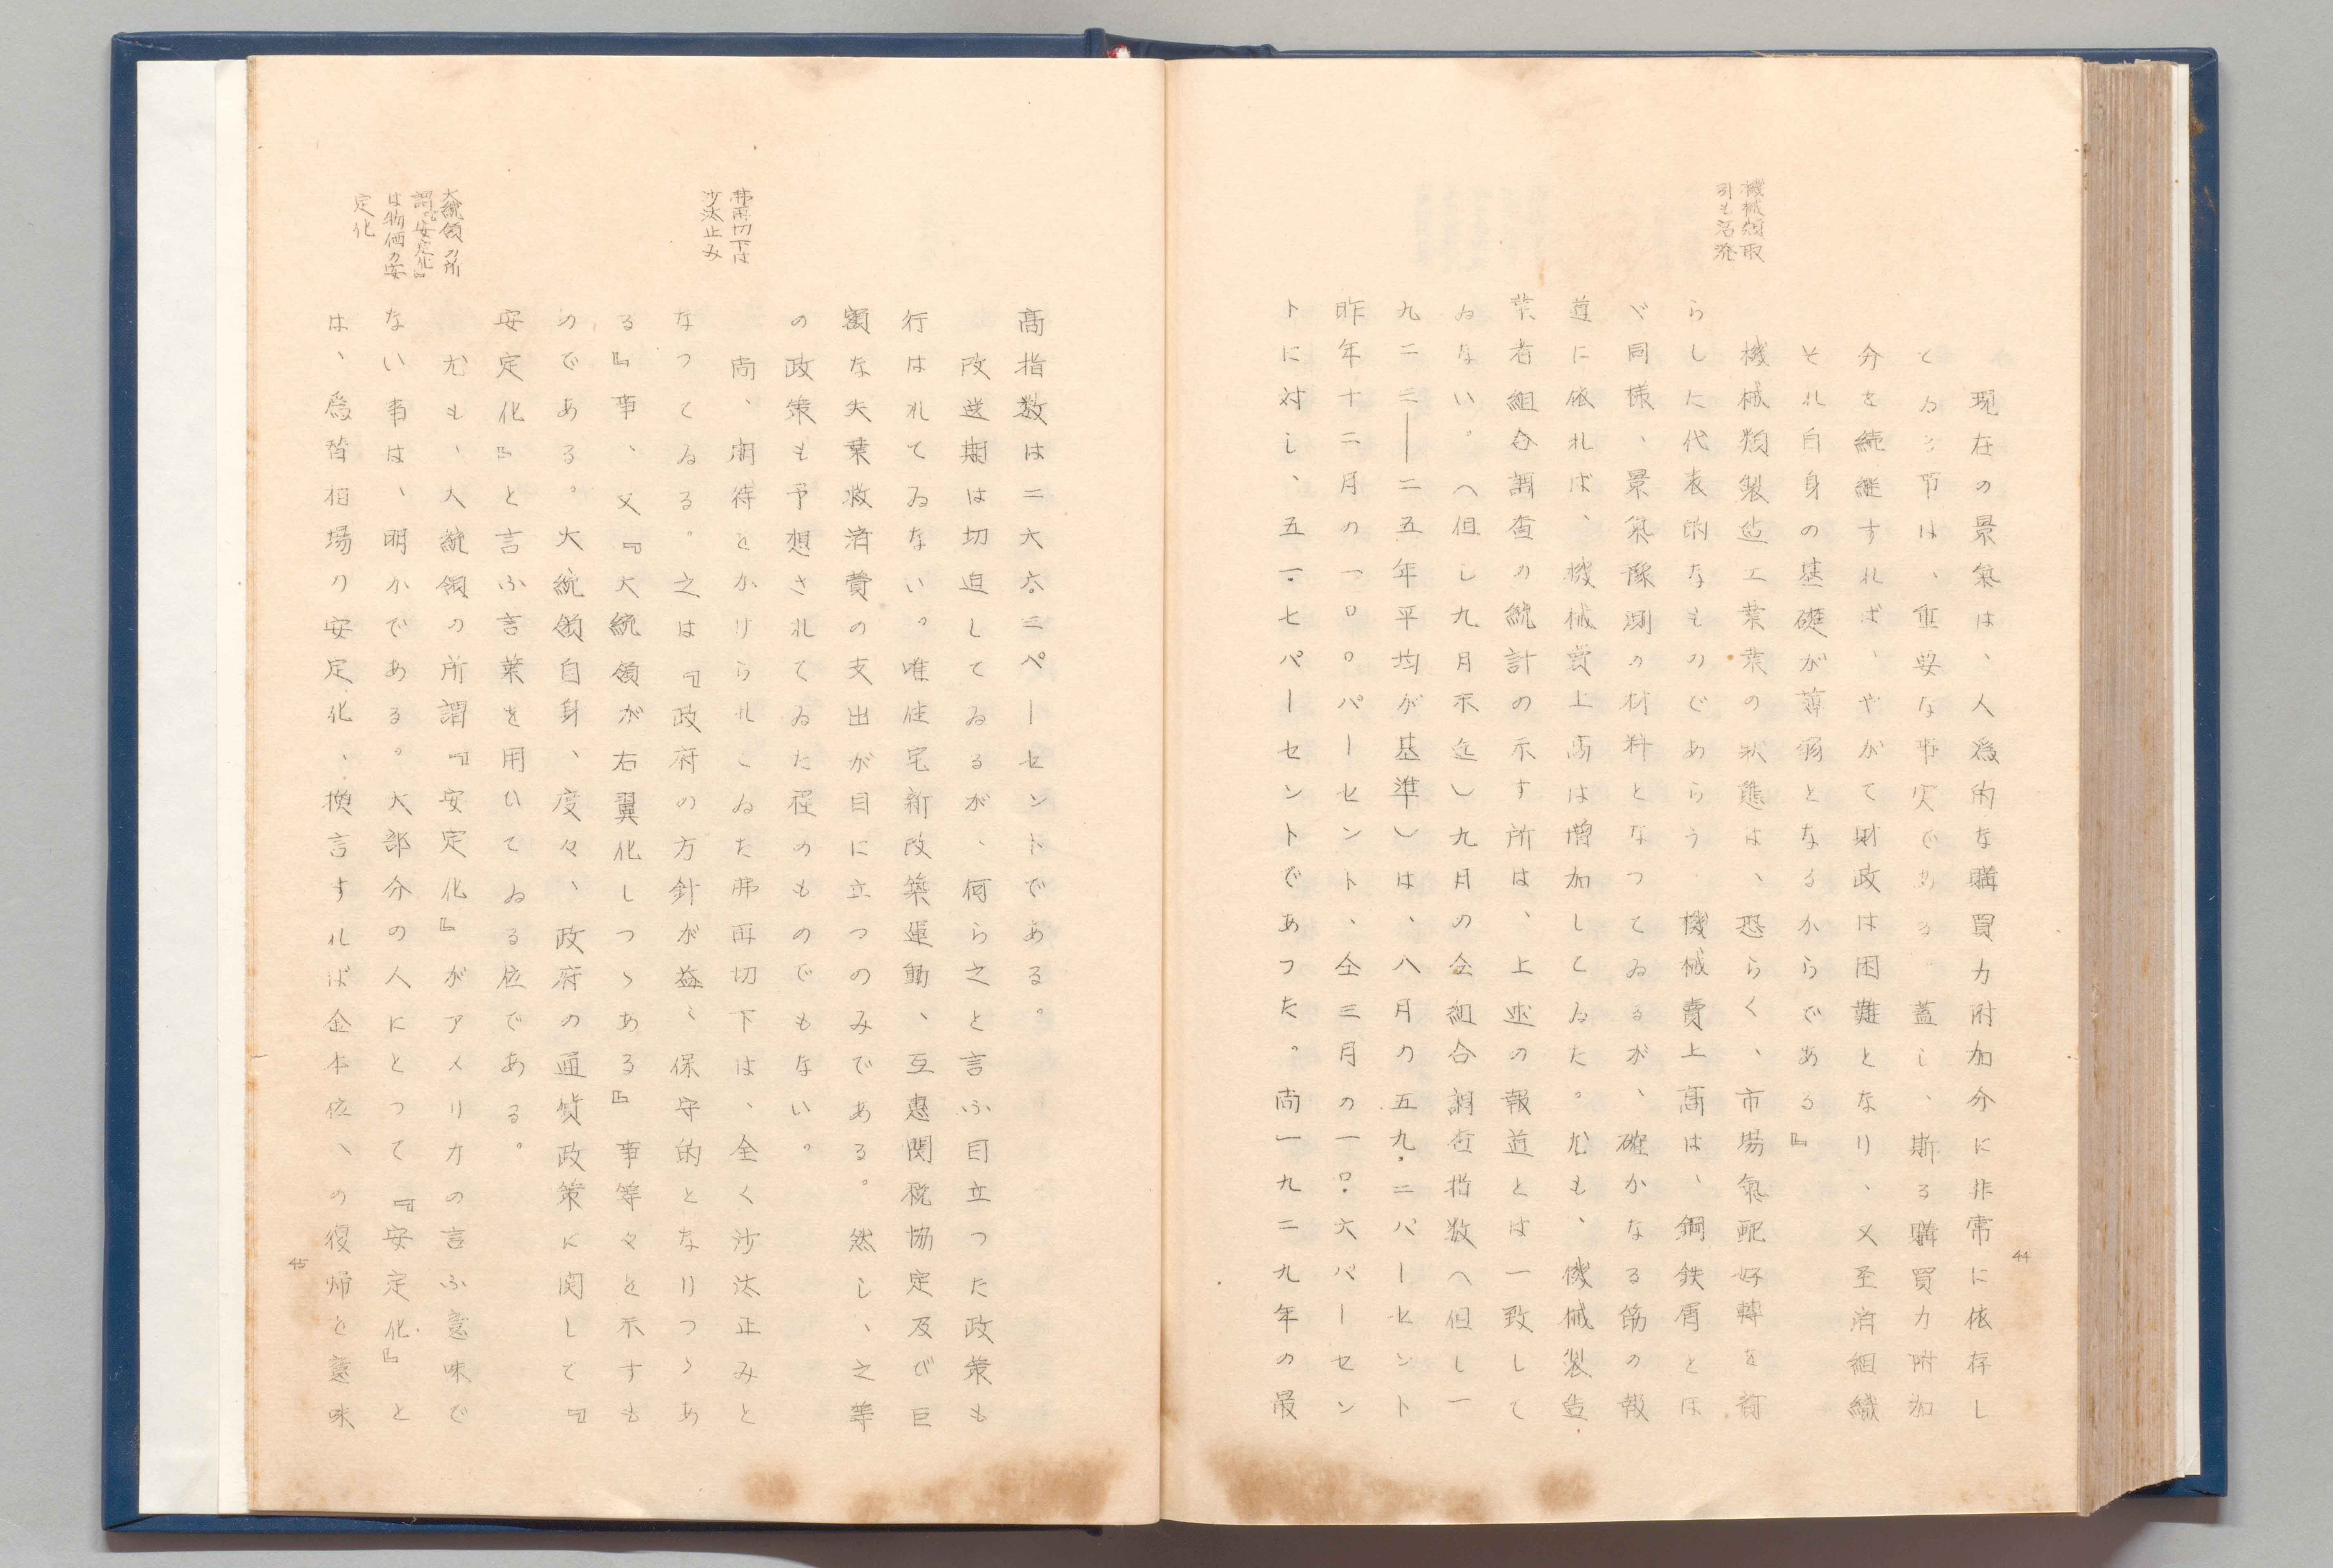 機械類取
引も活溌
現在の景氣は、人爲的な購買力附加分に非常に依存し
てゐる事は、重要な事実である。蓋し、斯る購買力附加
分を続継すれば、やがて財政は困難となり、又至済組織
それ自身の基礎が薄弱となるからである』
機械類製造工業葉の状態は、恐らく、市場氣配好轉を齎
らした代表的なものであらう。機械費上髙は、鋼鉄屑とほ
ゞ同様、景氣豫測の材料となつてゐるが、確かなる筋の報
道に依れば、機械賣上高は増加してゐた。尤も、機械製造
業者組合調査の統計の示す所は、上述の報道とは一致して
ゐない。(但し九月末迄)九月の仝組合調査指数(但し一
九二三――二五年平均が基準)は、八月の五九.二パーセント
昨年十二月の一〇〇.〇パーセント、仝三月の一〇.六パーセン
トに対し、五一.七パーセントであつた。尚一九二九年の最
44
髙指数は二六六.三ペーセントである。
改選期は切迫してゐるが、何ら之と言ふ目立つた政策も
行はれてゐない。唯住宅新改築運動、互惠関税協定及び巨
額な失業救済費の支出が目に立つのみである。然し、之等
の政策も予想されてゐた程のものでもない。
弗再切下は
沙汰止み
尚、期待をかけられてゐた弗再切下は、全く沙汰止みと
なつてゐる。之は『政府の方針が益〻保守的となりつゝあ
る』事、又『大統領が右翼化しつゝある』事等々を示すも
のである。大統領自身、度々、政府の通貨政策に関して『
安定化』と言ふ言葉を用ひてゐる位である。
大統領の所
謂『安定化』
は物価の安
定化
尤も、大統領の所謂『安定化』がアメリカの言ふ意味で
ない事は、明かである。大部分の人にとつて『安定化』と
は、爲替相場の安定化、換言すれば金本位への復帰を意味
45